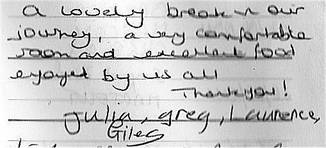 a lovely break in our
journey, a very comfortable
room and excellent food
enjoyed by us all
Thank you!
Julia, Greg, Laurence,
Giles